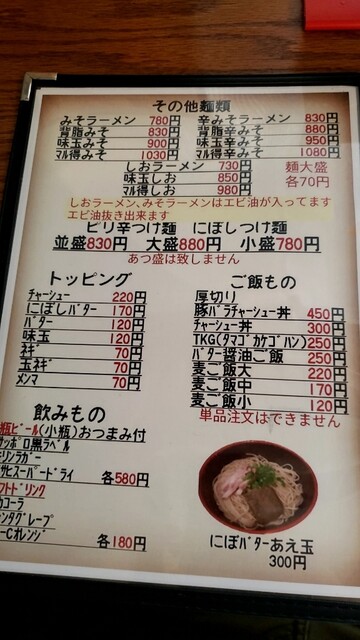 その他麺類
みそラーメン 780円
背脂みそ 830円
味玉みそ 900円
マル得みそ 1030円
辛みそラーメン 830円
背脂辛みそ 880円
味玉辛みそ 950円
マル得辛みそ 1080円
しおラーメン 730円
味玉しお 850円
マル得しお 980円
麺大盛
各70円
しおラーメン、みそラーメンはエビ油が入ってます
エビ油抜き出来ます
ピリ辛つけ麺 にぼしつけ麺
並盛830円 大盛880円 小盛780円
あつ盛は致しません
トッピング
チャーシュー 220円
にぼしバター 170円
バター 120円
味玉 120円
ネギ 70円
玉ネギ 70円
メンマ 70円
ご飯もの
厚切り
豚バラチャーシュー丼 450円
チャーシュー丼 300円
TKG(タマゴカケゴハン) 250円
バター醤油ご飯 250円
麦ご飯大 220円
麦ご飯中 170円
麦ご飯小 120円
単品注文はできません
飲みもの
瓶ビール(小瓶)おつまみ付
サッポロ黒ラベル
キリンラガー
アサヒスーパードライ 各580円
フトドリンク
カコーラ
ンタグレープ
ーCオレンジ
各180円
にぼバターあえ玉
300円